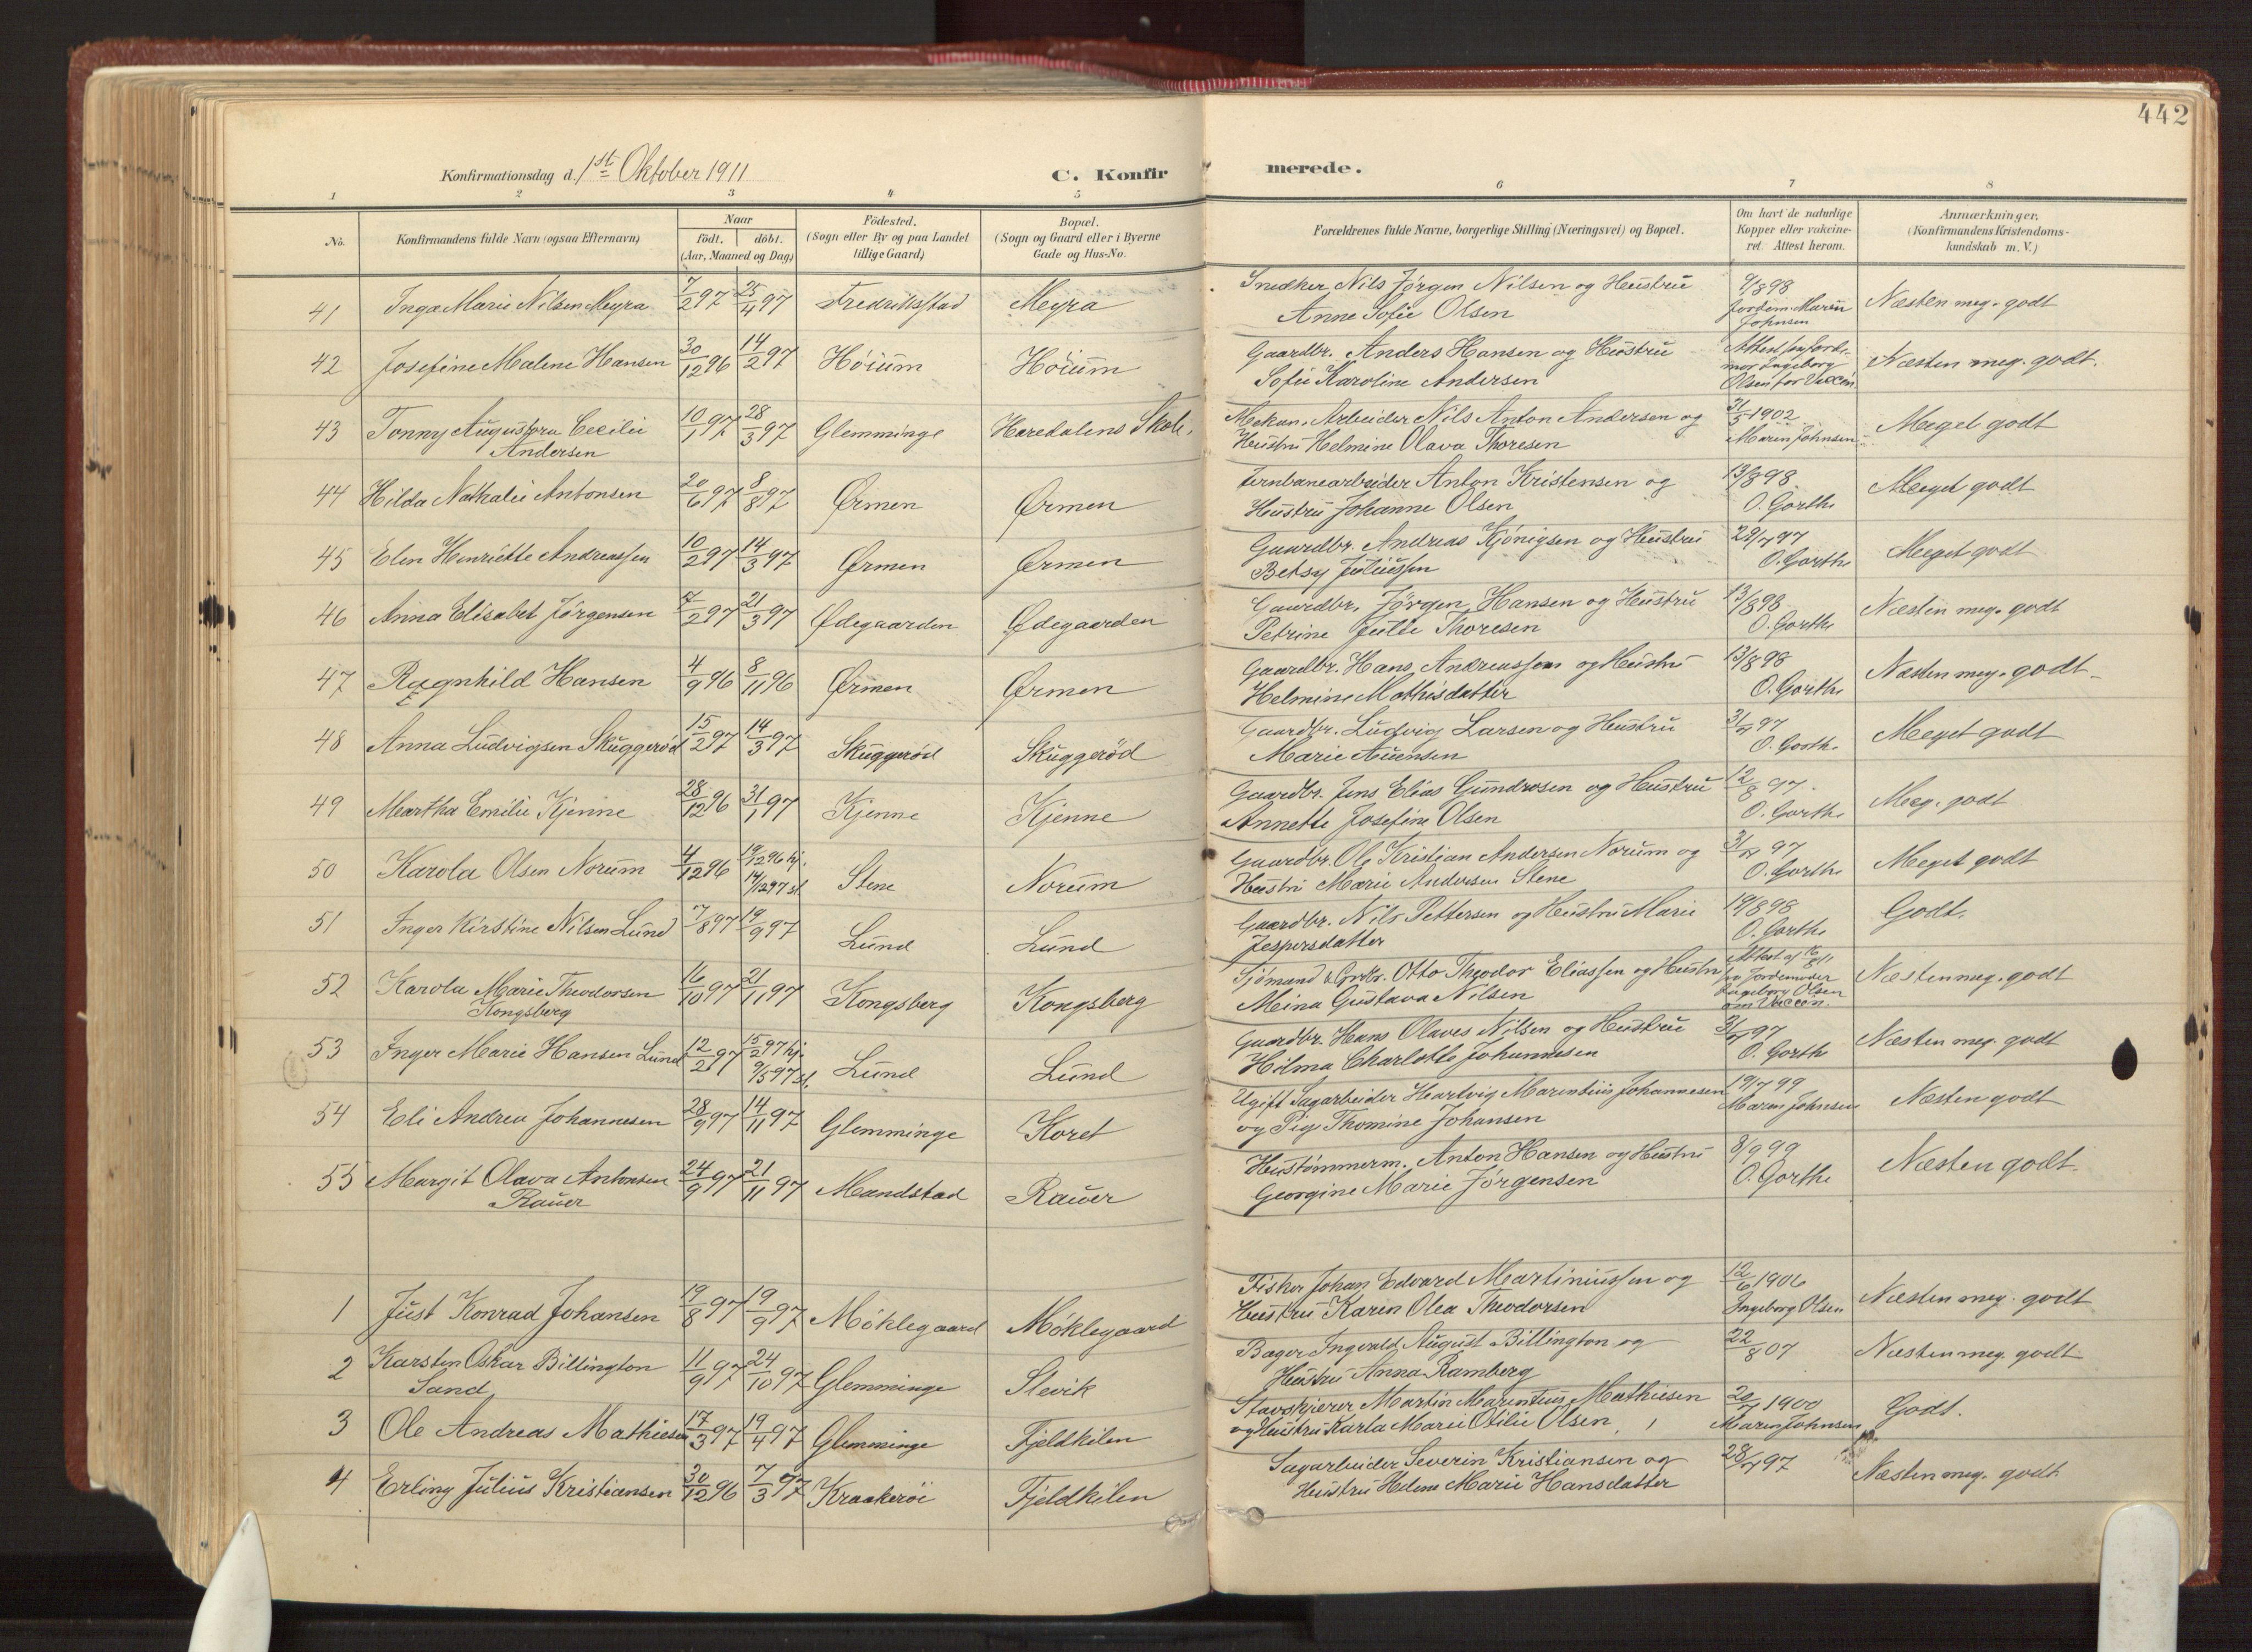 442
Konfirmationsdag d. 1st Oktober 1911
C. Konfirmerede.
1 2 3 4 5 6 7 8
No.
Konfirmandens fulde Navn (ogsaa Efternavn)
Naar
födt. döbt.
(Aar, Maaned og Dag)
Födested.
(Sogn eller By og paa Landet
tillige Gaard)
Bopæl.
(Sogn og Gaard eller i Byerne
Gade og Hus-No.
Forældrenes fulde Navne, borgerlige Stilling (Næringsvei) og Bopæl.
Om havt de naturlige
Kopper eller vakcine-
ret. Attest herom.
Anmærkninger.
(Konfirmandens Kristendoms-
kundskab m. V.)
41 Inga Marie Nilsen Meyra 7/2 97 25/4 97 Fredrikstad Meyra Snedker Nils Jørgen Nilsen og Hustru 9/8 98 Næsten meg. godt
Anne Sofie Olsen Jordem. Maren
Johnsen
42 Josefine Malene Hansen 30/12 96 14/2 97 Höium Höium Gaardbr. Anders Hansen og Hustru Næsten meg. godt.
Sofie Karoline Andersen mor Ingeborg
Olsen for Vaccin.
43 Tonny Augustora Cecilie 10/1 97 28/3 97 Glemminge Haredalens Skole. Mekan. Arbeider Nils Anton Andersen og 31/5 1902 Meget godt
Andersen Hustru Helmine Olava Thoresen Maren Johnsen
44 Hilda Nathalie Antonsen 20/6 97 8/8 97 Ørmen Ørmen Jernbanearbeider Anton Kristensen og 13/8 98 Meget godt
Hustru Johanne Olsen O. Gorthe
45 Elen Henriette Andreassen 10/2 97 14/3 97 Ørmen Ørmen Gaardbr. Andreas Kjönigsen og Hustru Meget godt
Betsy Juliussen O. Gorthe
46 Anna Elisabet Jørgensen 7/2 97 21/3 97 Ødegaarden Ødegaarden Gaardbr. Jörgen Hansen og Hustru 13/8 98 Næsten meg. godt
Petrine Julie Thoresen O. Gorthe
47 Ragnhild Hansen 4/9 96 8/11 96 Ørmen Ørmen Gaardbr. Hans Andreassen og Hustru 13/8 98 Næsten meg. godt
Helmine Mathisdatter O. Gorthe
48 Anna Ludvigsen Skuggeröd 15/2 97 14/3 97 Skuggeröd Skuggeröd Gaardbr. Ludvig Larsen og Hustru 31/7 97 Meget godt
Marie Auensen O. Gorthe
49 Martha Emilie Kjenne 28/12 96 31/1 97 Kjenne Kjenne Gaardbr. Jens Elias Gundrosen og Hustru 12/8 97 Meg. godt
Annette Josefine Olsen O. Gorthe
50 Karola Olsen Norum 4/12 96 19/12 96 hj. Stene Norum Gaardbr. Ole Kristian Andersen Norum og 31/7 97 Meget godt
14/12 97 st. Hustru Marie Andersen Stene O. Gorthe
51 Inger Kirstine Nilsen Lund 7/8 97 19/9 97 Lund Lund Gaardbr. Nils Pettersen og Hustru Marie 19/8 98 Godt.
Jespersdatter O. Gorthe
52 Karola Marie Theodorsen 16/10 97 21/11 97 Kongsberg Kongsberg Sjömand & Grdbr. Otto Theodor Eliassen og Hustru Attest af Næsten meg. godt
Kongsberg Meina Gustava Nilsen fra Jordemoder
Ingeborg Olsen
om Vaccin.
53 Inger Marie Hansen Lund 12/2 97 15/2 97 hj. Lund Lund Gaardbr. Hans Olaves Nilsen og Hustru 31/7 97 Næsten meg. godt
9/5 97 st. Hilma Charlotte Johannesen O. Gorthe
54 Eli Andrea Johannesen 28/9 97 14/11 97 Glemminge Koret Ugift Sagarbeider Hartvig Marentius Johannesen 19/7 99 Næsten godt
og Pige Thomine Johansen Maren Johnsen
55 Margit Olava Antonsen 24/9 97 21/11 97 Mandstad Rauer Hustömmerm. Anton Hansen og Hustru 8/9 99 Næsten godt
Rauer Georgine Marie Jörgensen O. Gorthe
1 Just Konrad Johansen 19/8 97 19/9 97 Möklegaard Möklegaard Fisker Johan Edvard Martiniussen og 12/6 1906 Næsten meg. godt
Hustru Karen Olea Theodorsen Ingeborg Olsen
2 Karsten Oskar Billington 11/9 97 24/10 97 Glemminge Slevik Bager Ingvald August Billington og 22/8 07 Næsten meg. godt
Sand Hustru Anna Ramberg
3 Ole Andreas Mathiesen 17/3 97 19/4 97 Glemminge Fjeldkilen Martin Marentius Mathiesen 20/7 1900 Godt.
og Hustru Karla Marie Otilie Olsen Maren Johnsen
4 Erling Julius Kristiansen 30/12 96 7/3 97 Kraakeröi Fjeldkilen Sagarbeider Severin Kristiansen og 28/7 97 Næsten meg. godt
Hustru Helene Marie Hansdatter